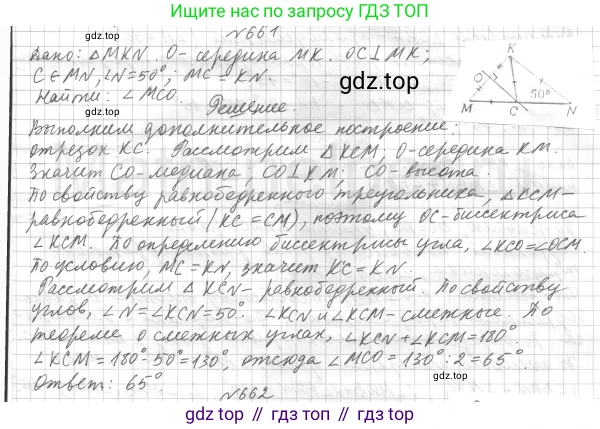 Ищите нас по запросу ГДЗ ТОП
№661
Дано: △MKN, O-середина MK. OC⊥MK;
C∈MN, ∠N=50°, MC=KN.
Найти: ∠MCO.
Решение.
K
O
50°
M
C
N
Выполним дополнительное построение:
отрезок KC. Рассмотрим △KCM, O-середина KM.
Значит CO-медиана; CO⊥KM; CO-высота.
По свойству равнобедренного треугольника, △KCM-
равнобедренный (KC=CM), поэтому OC-биссектриса
∠KCM. По определению биссектрисы угла, ∠KCO=∠OCM.
По условию, MC=KN, значит KC=KN.
Рассмотрим △KCN- равнобедренный. По свойству
углов, ∠N=∠KCN=50°. ∠KCN и ∠KCM-смежные. По
теореме о смежных углах, ∠KCN+∠KCM=180°.
∠KCM=180°-50°=130°, отсюда ∠MCO=130°:2=65°.
Ответ: 65°.
№662
gdz.top // гдз.топ // gdz.top // гдз.топ